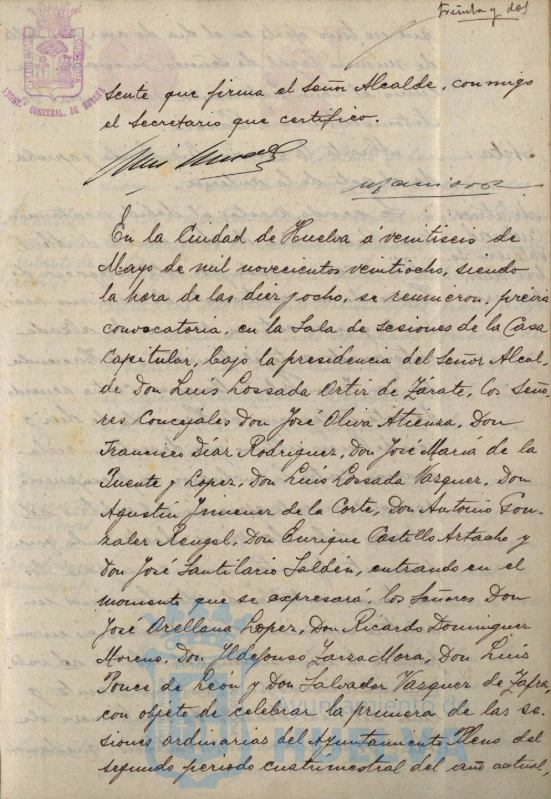 treinta y dos
AYUNT. CONSTNAL. DE HUELVA
sente que firma el Señor Alcalde, conmigo
el Secretario que certifico.
En la Ciudad de Huelva á veintiseis de
Mayo de mil novecientos veintiocho, siendo
la hora de las diez y ocho, se reunieron, previa
convocatoria, en la Sala de sesiones de la Casa
Capitular, bajo la presidencia del Señor Alcal-
de Don Luis Lossada Ortiz de Zarate, los Seño-
res Concejales Don José Oliva Atienza, Don
Francisco Díaz Rodriguez, Don José María de la
Puente y Lopez, Don Luis Lossada Vazquez, Don
Agustín Jimenez de la Corte, Don Antonio Gon-
zalez Rengel, Don Enrique Castillo Artacho y
Don José Santilario Saldén, entrando en el
momento que se expresará, los Señores Don
José Orellana Lopez, Don Ricardo Dominguez
Moreno, Don Ildefonso Zarza Mora, Don Luis
Ponce de León y Don Salvador Vazquez de Zafra,
con objeto de celebrar la primera de las se-
siones ordinarias del Ayuntamiento Pleno del
segundo periodo cuatrimestral del año actual,
Ayuntamiento de
HUELVA